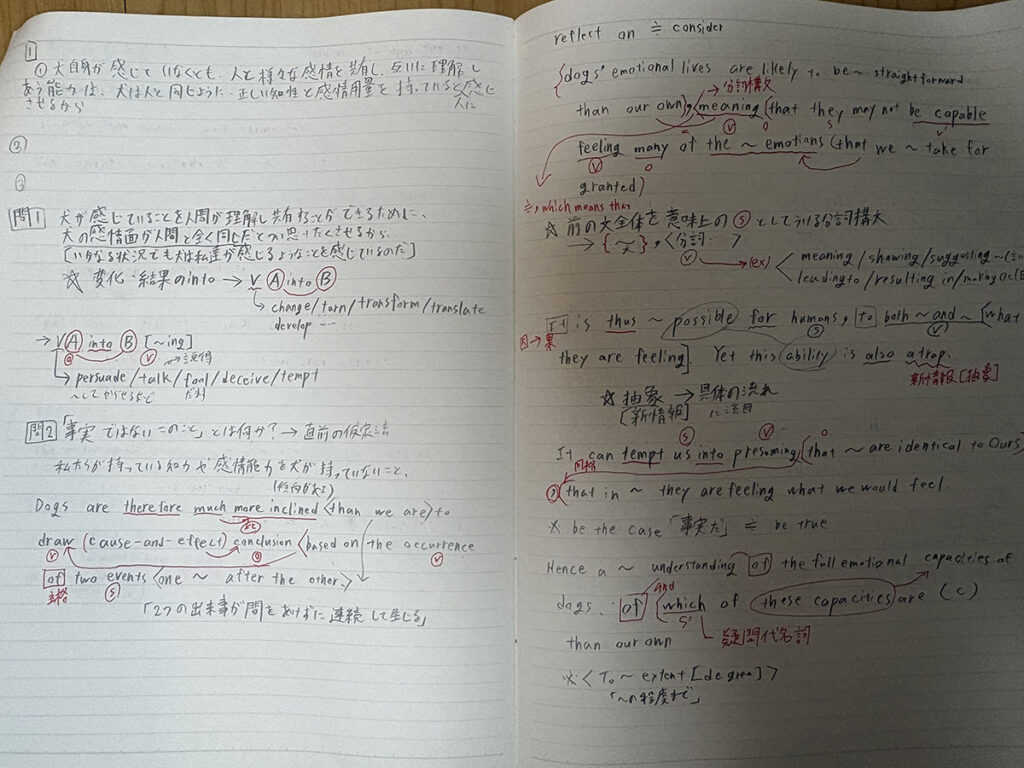 1
① 犬自身が感じていなくとも、人と様々な感情を共有し、互いに理解し
あう能力は、犬は人と同じように、正しい知性と感情用量を持っていると感じ
させるから 人に
②
③
問1 犬が感じていることを人間が理解し共有することができるために、
犬の感情面が人間と全く同じだとつい思いたくさせるから。
[いかなる状況でも犬は私達が感じるようなことを感じているのだ]
☆ 変化・結果のinto → V A into B
change/turn/transform/translate
develop …
→ V A into B [~ing]
→説得
persuade/talk/fool/deceive/tempt
~してやらせるなど だます
問2「事実ではないこのこと」とは何か? → 直前の仮定法
私たちが持っている知力や感情能力を犬が持っていないこと、
(傾向がある)
Dogs are therefore much more inclined <than we are> to
draw (cause-and-effect) conclusion <based on the occurrence
of two events <one ~ after the other>
主格
「2つの出来事が間をあけずに連続して生じる」
reflect on ≒ consider
{dogs' emotional lives are likely to be ~ straightforward
分詞構文
than our own}, meaning (that they may not be capable
feeling many of the ~ emotions (that we ~ take for
granted)
≒, which means that
☆ 前の文全体を意味上のSとしている分詞構文
→ {文}, <分詞: >
V → (ex) meaning/showing/suggesting ~
leading to/resulting in/making O C
It is thus ~ possible for humans, to both ~ and ~ [what
因→果
they are feeling]. Yet this ability is also a trap.
新情報[抽象]
☆ 抽象 → 具体の流れ
[新情報] に注目
It can tempt us into presuming (that ~ are identical to ours)
同格
, (that in ~ they are feeling what we would feel.
※ be the case 「事実だ」 ≒ be true
Hence a ~ understanding of the full emotional capacities of
and
dogs. of {which of these capacities are (C)
疑問代名詞
than our own
※ <To ~ extent [degree]>
「~の程度まで」